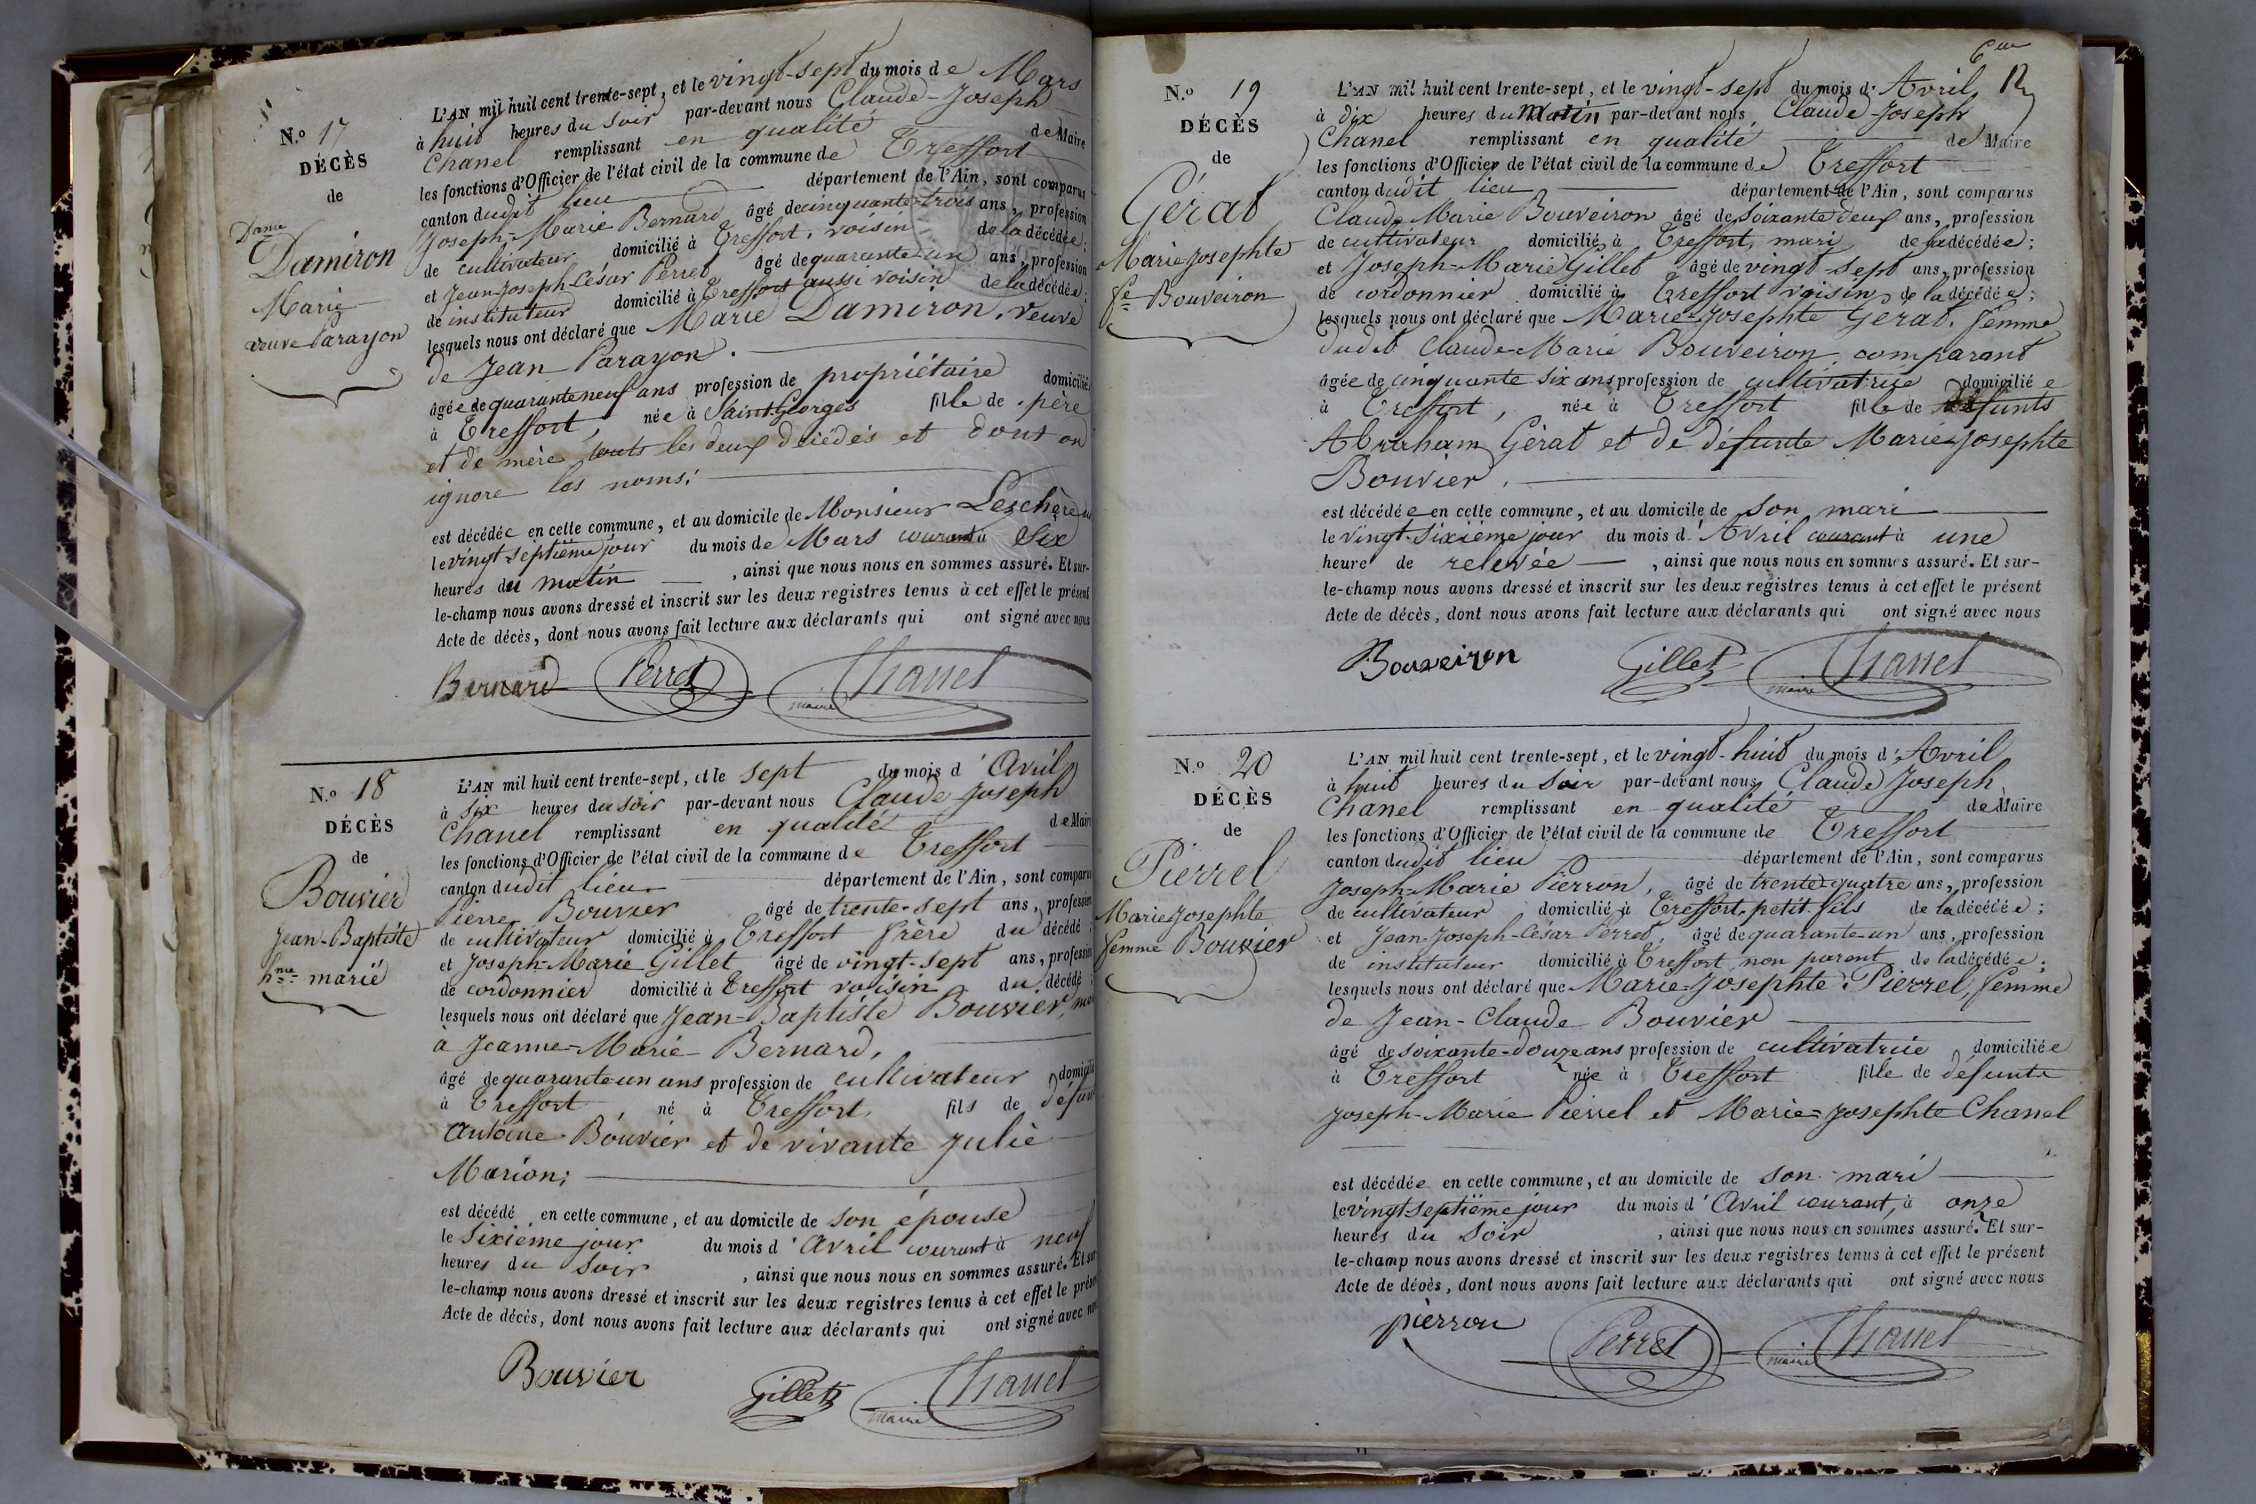 N.º 17
DÉCÈS
de
Dame
Damiron
Marie
veuve Parayon
L'AN mil huit cent trente-sept, et le vingt-sept du mois de Mars
à huit heures du soir par-devant nous Claude-Joseph
Chanel remplissant en qualité de Maire
les fonctions d'Officier de l'état civil de la commune de Treffort
canton dudit lieu département de l'Ain, sont comparus
Joseph-Marie Bernard âgé de cinquante-trois ans, profession
de cultivateur domicilié à Treffort, voisin de la décédée;
et Jean-Joseph-César Perret âgé de quarante-un ans, profession
de instituteur domicilié à Treffort aussi voisin de la décédée;
lesquels nous ont déclaré que Marie Damiron, veuve
de Jean Parayon.
âgée de quarante neuf ans profession de propriétaire domiciliée
à Treffort, née à Saint Georges fille de père
et de mère touts les deux décédés et dont on
ignore les noms;
est décédée en cette commune, et au domicile de Monsieur
le vingt-septième jour du mois de Mars courant à Six
heures du matin, ainsi que nous nous en sommes assuré. Et sur-
le-champ nous avons dressé et inscrit sur les deux registres tenus à cet effet le présent
Acte de décès, dont nous avons fait lecture aux déclarants qui ont signé avec nous
Bernard Perret Chanel
maire
N.º 18
DÉCÈS
de
Bouvier
Jean-Baptiste
hme marié
L'AN mil huit cent trente-sept, et le sept du mois d'Avril
à six heures du soir par-devant nous Claude Joseph
Chanel remplissant en qualité de Maire
les fonctions d'Officier de l'état civil de la commune de Treffort
canton dudit lieu département de l'Ain, sont comparus
Pierre Bouvier âgé de trente-sept ans, profession
de cultivateur domicilié à Treffort frère du décédé;
et Joseph-Marie Gillet âgé de vingt-sept ans, profession
de cordonnier domicilié à Treffort voisin du décédé;
lesquels nous ont déclaré que Jean-Baptiste Bouvier,
à Jeanne-Marie Bernard,
âgé de quarante-un ans profession de cultivateur domicilié
à Treffort né à Treffort, fils de défunt
Antoine Bouvier et de vivante Julie
Marion;
est décédé en cette commune, et au domicile de son épouse
le Sixième jour du mois d'Avril courant à neuf
heures du soir, ainsi que nous nous en sommes assuré. Et sur-
le-champ nous avons dressé et inscrit sur les deux registres tenus à cet effet le présent
Acte de décès, dont nous avons fait lecture aux déclarants qui ont signé avec nous
Bouvier Gillet Chanel
maire
6me 12
N.º 19
DÉCÈS
de
Gérat
Marie Josephte
fe Bouveiron
L'AN mil huit cent trente-sept, et le vingt-sept du mois d'Avril,
à dix heures du matin par-devant nous, Claude-Joseph
Chanel remplissant en qualité de Maire
les fonctions d'Officier de l'état civil de la commune de Treffort
canton dudit lieu département de l'Ain, sont comparus
Claude Marie Bouveiron âgé de Soixante deux ans, profession
de cultivateur domicilié à Treffort, mari de la décédée;
et Joseph-Marie Gillet âgé de vingt-sept ans, profession
de cordonnier domicilié à Treffort voisin de la décédée;
lesquels nous ont déclaré que Marie-Josephte Gérat, femme
dudit Claude-Marie Bouveiron comparant
âgée de cinquante six ans profession de cultivatrice domiciliée
à Treffort, née à Treffort fille de défunts
Abraham Gérat et de défunte Marie-Josephte
Bouvier.
est décédée en cette commune, et au domicile de son mari
le vingt-sixième jour du mois d'Avril courant à une
heure de relevée, ainsi que nous nous en sommes assuré. Et sur-
le-champ nous avons dressé et inscrit sur les deux registres tenus à cet effet le présent
Acte de décès, dont nous avons fait lecture aux déclarants qui ont signé avec nous
Bouveiron Gillet Chanel
maire
N.º 20
DÉCÈS
de
Pierrel
Marie Josephte
femme Bouvier
L'AN mil huit cent trente-sept, et le vingt-huit du mois d'Avril
à huit heures du soir par-devant nous Claude Joseph
Chanel remplissant en qualité de Maire
les fonctions d'Officier de l'état civil de la commune de Treffort
canton dudit lieu département de l'Ain, sont comparus
Joseph-Marie Pierron, âgé de trente-quatre ans, profession
de cultivateur domicilié à Treffort, petit-fils de la décédée;
et Jean-Joseph-César Perret, âgé de quarante-un ans, profession
de instituteur domicilié à Treffort non parent de la décédée;
lesquels nous ont déclaré que Marie-Josephte Pierrel, femme
de Jean-Claude Bouvier
âgé de soixante-douze ans profession de cultivatrice domiciliée
à Treffort née à Treffort fille de défunts
Joseph-Marie Pierrel et Marie-Josephte Chanel
est décédée en cette commune, et au domicile de son mari
le vingt septième jour du mois d'Avril courant, à onze
heures du soir, ainsi que nous nous en sommes assuré. Et sur-
le-champ nous avons dressé et inscrit sur les deux registres tenus à cet effet le présent
Acte de décès, dont nous avons fait lecture aux déclarants qui ont signé avec nous
pierron Perret Chanel
maire